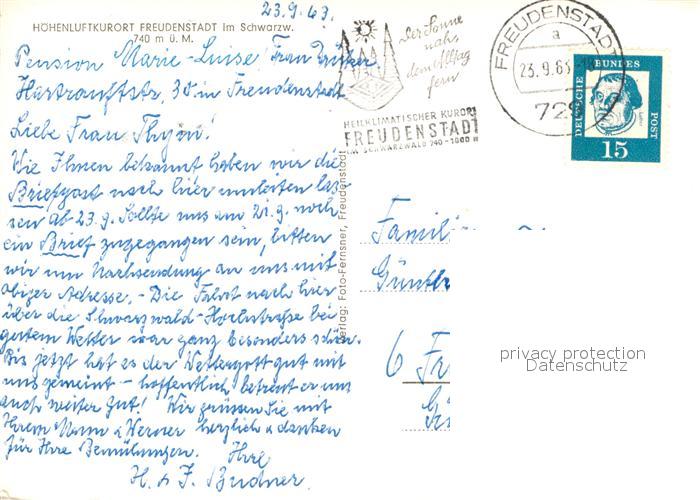 23.9.63.
HÖHENLUFTKURORT FREUDENSTADT im Schwarzw.
740 m ü. M.
Pension Marie-Luise, Frau
Hartranftstr. 35 in Freudenstadt
Liebe Frau Thym!
Wie Ihnen bekannt haben wir die
Briefpost nach hier umleiten las-
sen ab 23.9. Sollte uns am 21.9. noch
ein Brief zugegangen sein, bitten
wir um Nachsendung an uns mit
obiger Adresse. - Die Fahrt nach hier
über die Schwarzwald-Hochstraße bei
gutem Wetter war ganz besonders schön.
Bis jetzt hat es der Wettergott gut mit
uns gemeint - hoffentlich betreut er uns
auch weiter gut! Wir grüssen Sie mit
Ihrem Mann & Werner herzlich & danken
für Ihre Bemühungen. Ihre
H. & J. Budner.
Verlag: Foto-Fernsner, Freudenstadt
Der Sonne
nah,
dem Alltag
fern
HEILKLIMATISCHER KURORT
FREUDENSTADT
IM SCHWARZWALD 740-1000 m
FREUDENSTADT
a
23.9.63
729
DEUTSCHE BUNDES POST
15
Famili
Günth
6 Fr
privacy protection
Datenschutz